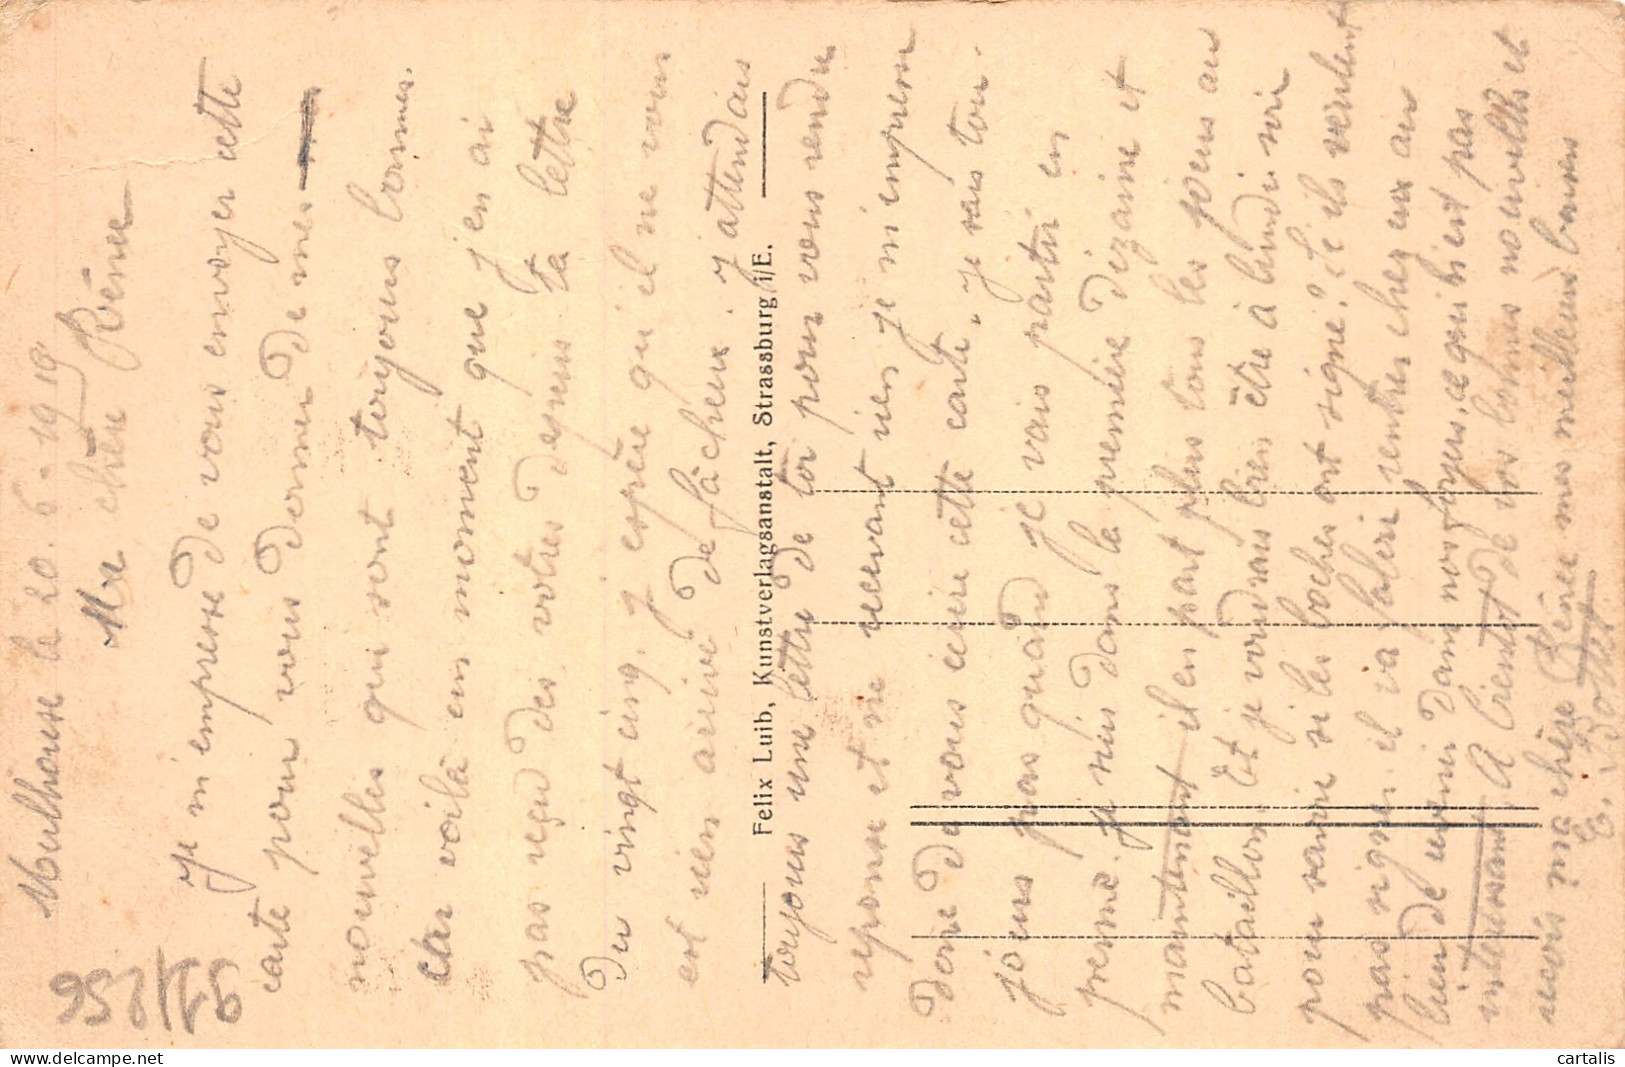 Mulhouse le 20.6.1919
Ma chère Rénée
Je m'empresse de vous envoyer cette
carte pour vous donner de mes
nouvelles qui sont toujours bonnes.
Car voilà un moment que j'en ai
pas reçu des votres depuis ta lettre
Du vingt cinq, j'espère qu'il ne vous
est rien arrivé de fâcheux. J'attendais
toujours une lettre de toi pour vous rendre
reponse et ne recevant rien je m'empresse
Donc de vous écrire cette carte, je sais tou-
jours pas quand je vais partir en
perme. je suis dans la première dizaine et
maintenant il en part plus tous les jours au
bataillon. Et je voudrais bien être à lundi soir
pour savoir si les boches ont signé? Si ils veulent
pas signer il va falloir rentrer chez eux au
lieu de venir dans nos foyers, ce qui n'est pas
intéressant. A bientôt de vos bonnes nouvelles et
reçois ma chère Rénée mes meilleurs baisers
E. Bottet
Felix Luib, Kunstverlagsanstalt, Strassburg i/E.
971256
cartalis